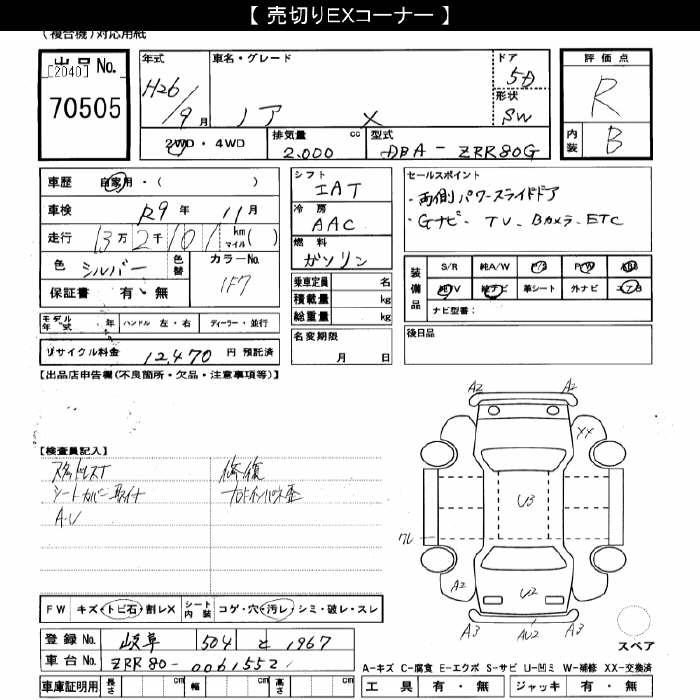 【 売切りEXコーナー 】
(複合機)対応用紙
出品 No.
[2040]
70505
年式
H26/9月
車名・グレード
ノア X
ドア
5D
形状
SW
評価点
R
内装
B
2WD・4WD
排気量 cc
2.000
型式
DBA-ZRR80G
車歴 自家用・( )
車検 R9年 11月
走行 13万2千101 km マイル( )
色 シルバー 色替 カラーNo. 1F7
保証書 有・無
シフト
IAT
冷房
AAC
燃料
ガソリン
乗車定員 名
積載量 kg
総重量 kg
セールスポイント
・両側パワースライドドア
・Gナビ・TV・Bカメラ・ETC
装備品
S/R 純A/W P/S P/W A/B
純TV 純ナビ 革シート 外ナビ エアB
ナビ型番:
モデル年式 年 ハンドル 左・右 ディーラー・並行
リサイクル料金 12,470 円 預託済
名変期限
月 日
後日品
【出品店申告欄(不良箇所・欠品・注意事項等)】
【検査員記入】
スタッドレスT
シートカバー取付
A・U
修復
A2 A2
XX
U3
ワレ
A2
U2
A3 AU2 A3
FW キズ・トビ石・割レX シート内装 コゲ・穴・汚レ・シミ・破レ・スレ
登録 No. 岐阜 504 と 1967
車台 No. ZRR80-0061552
車庫証明用 長さ cm 幅 cm 高さ cm
スペア
A-キズ C-腐食 E-エクボ S-サビ U-凹ミ W-補修 XX-交換済
工具 有・無 ジャッキ 有・無